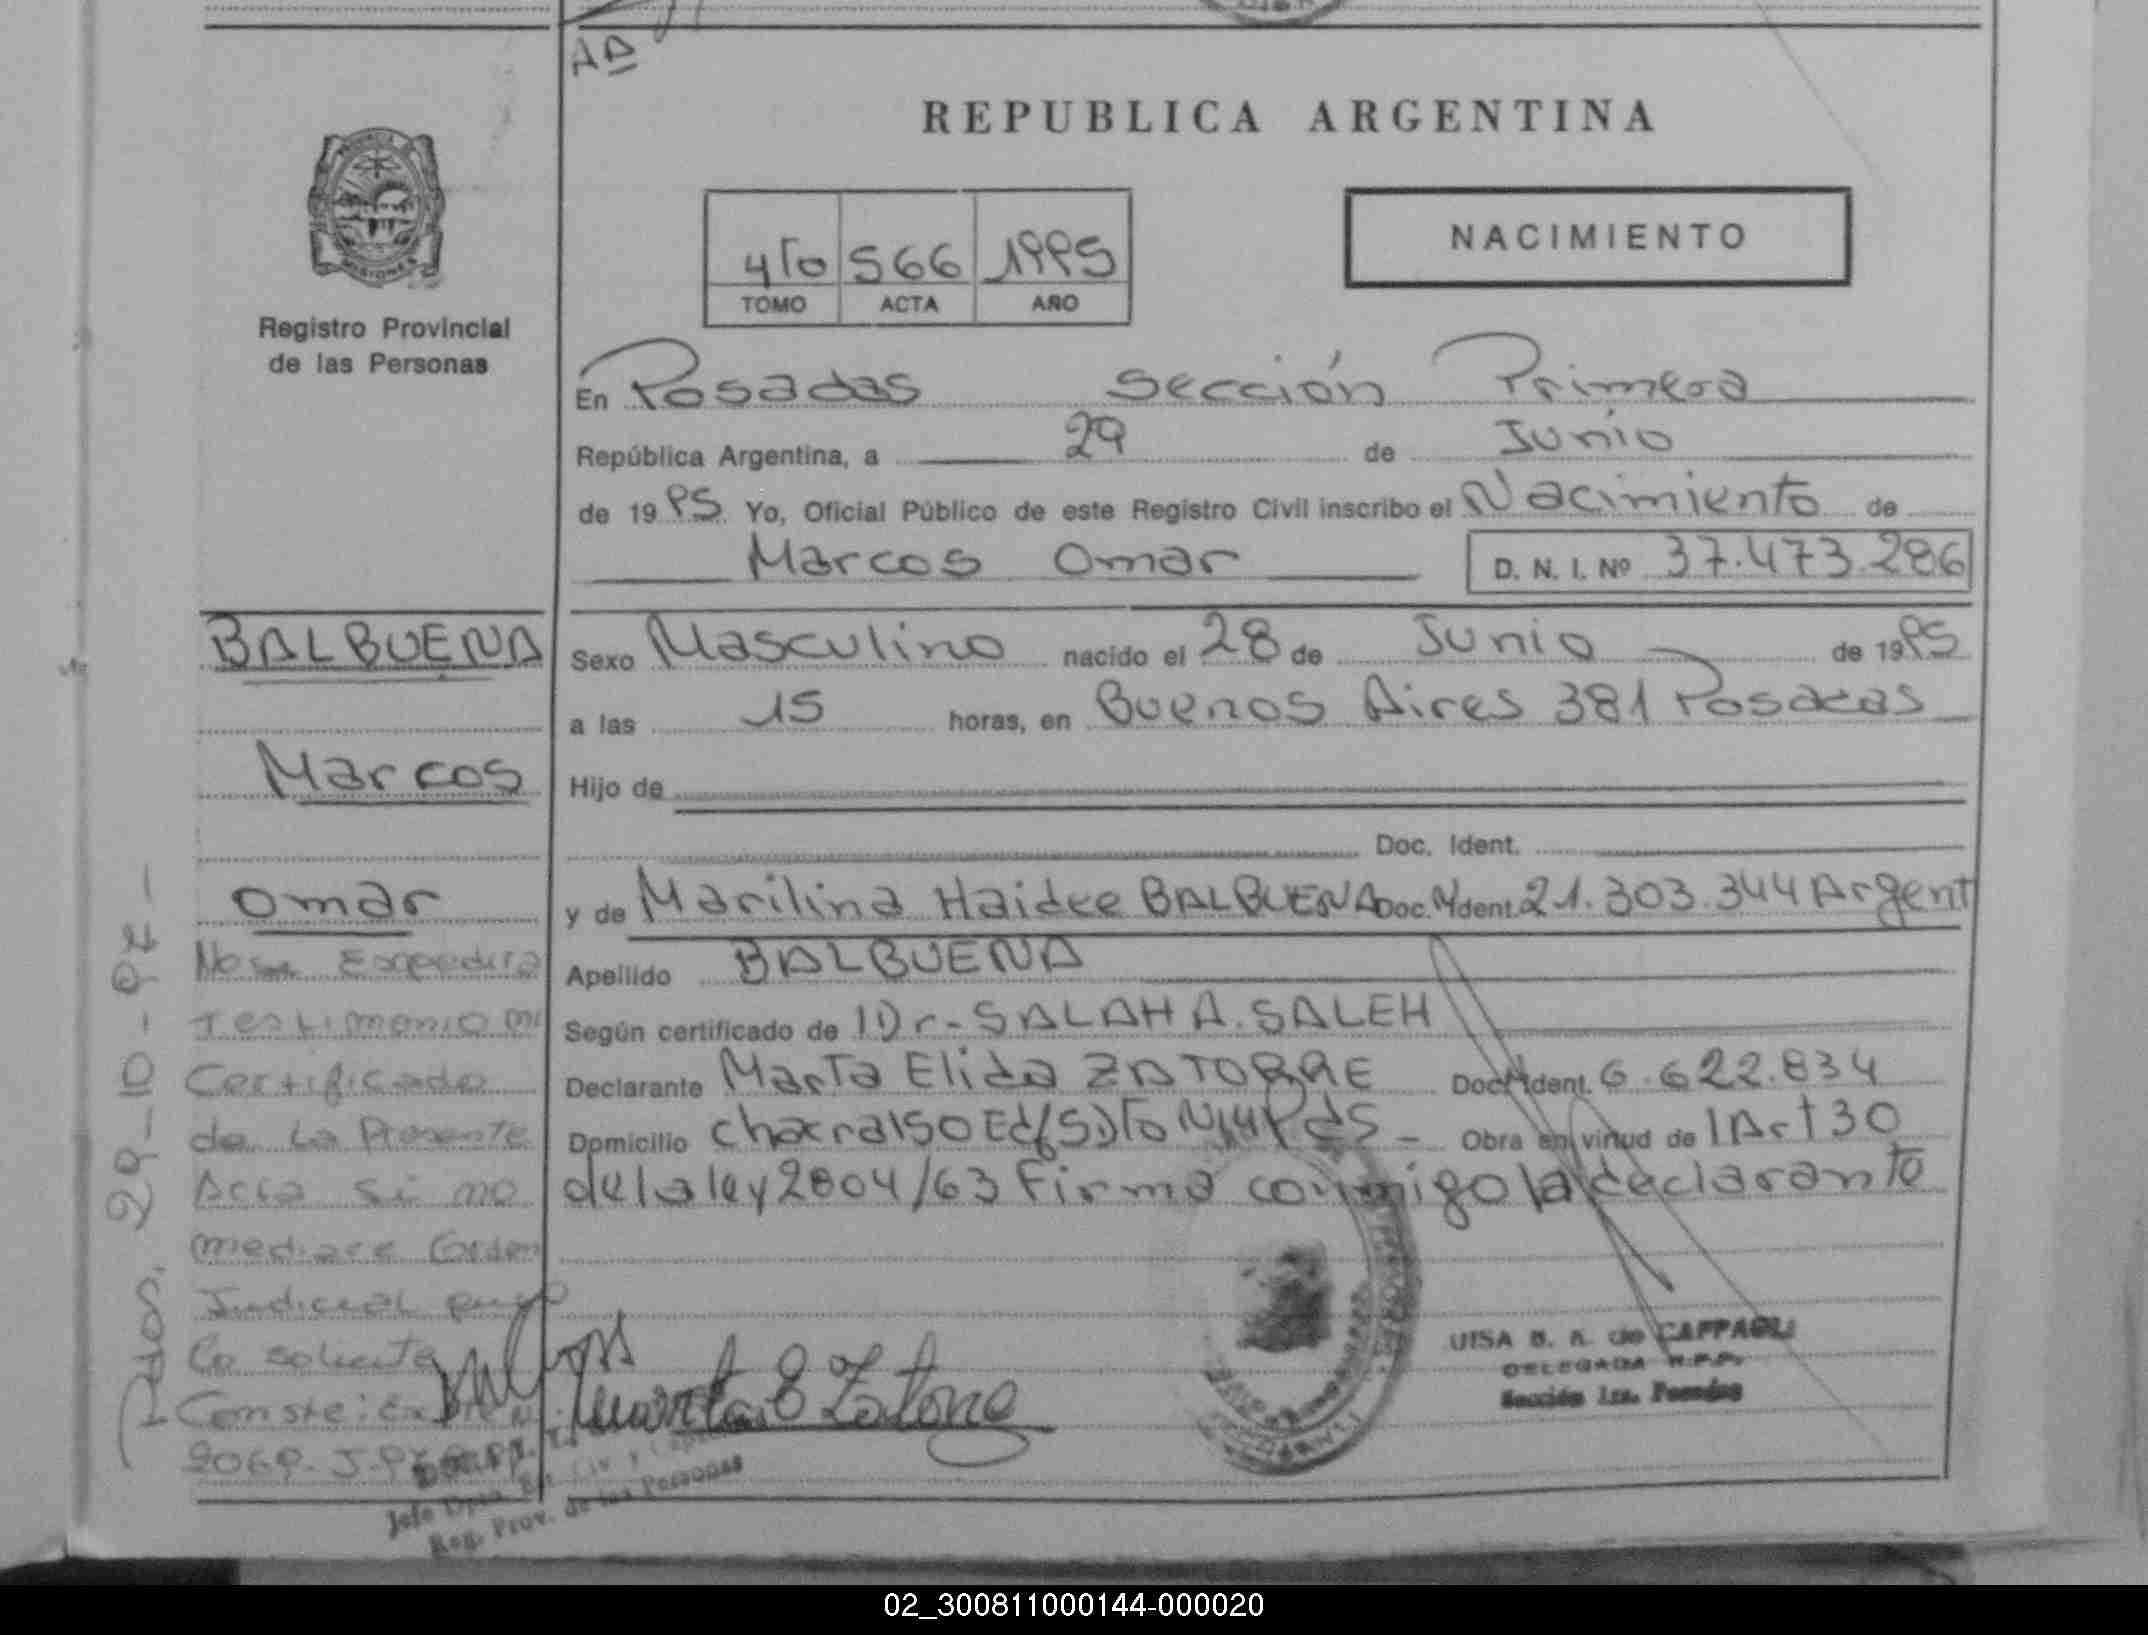 AD
REPUBLICA ARGENTINA
PROVINCIA
MISIONES
Registro Provincial
de las Personas
4to 566 1995
TOMO ACTA AÑO
NACIMIENTO
En Posadas Sección Primera
República Argentina, a 29 de Junio
de 1995 Yo, Oficial Público de este Registro Civil inscribo el Nacimiento de
Marcos Omar D. N. I. Nº 37.473.286
BALBUENA
Marcos
Omar
Sexo Masculino nacido el 28 de Junio de 1995
a las 15 horas, en Buenos Aires 381 Posadas
Hijo de
Doc. Ident.
y de Marilina Haidee BALBUENA Doc. Ident. 21.303.344 Argent
Apellido BALBUENA
Según certificado de Dr. SALAH A. SALEH
Declarante Marta Elida ZATORRE Doc. Ident. 6.622.834
Domicilio chacra 150 Ed(5) Dto Pds Obra en virtud de Art 30
de la ley 2804/63 Firma conmigo la declarante
No se Expedira
Testimonio ni
Certificado
de La Presente
Acta Si no
mediare Orden
Judicial que
Lo solicite
Conste:
Pdas. 29-10-97-
Marta E Zatorre
UISA B. R. de CAPPAGLI
DELEGADA R.P.P.
Sección 1ra. Posadas
Jefe Dpto. Est. Civ. y Capac.
Reg. Prov. de las Personas
02_300811000144-000020